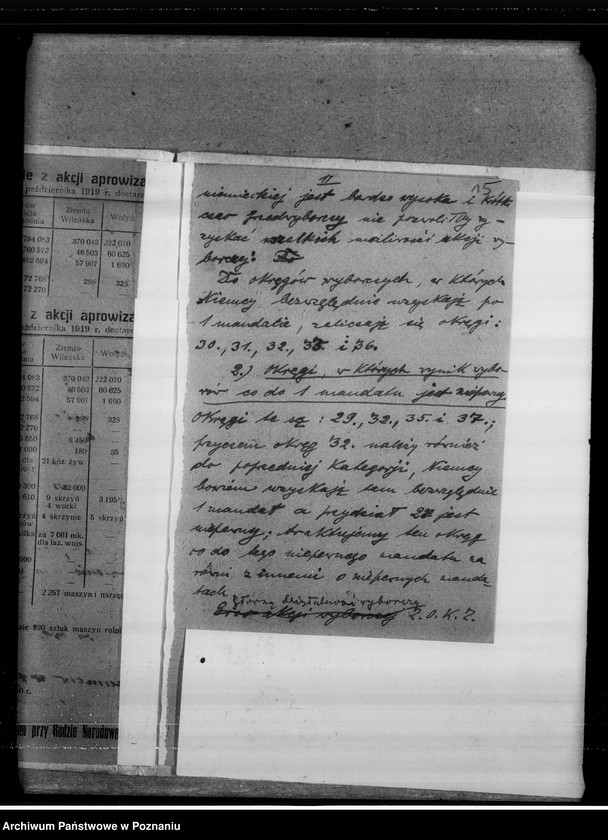 ie z akcji aprowiza
października 1919 r. dostarc
Ziemia Wileńska
Wołyń
784 083 370 043 222 010
760 572 46 503 60 625
462 594 57 907 1 690
72 768 286 325
72 270 — —
z akcji aprowiza
ździernika 1919 r. dostarc
Ziemia Wileńska
Wołyń
370 043 222 010
46 503 60 625
57 907 1 690
325
180 35
21 kóz żyw
9 skrzyń
4 worki
4 skrzynie 5 skrzyń
za 7 061 mk.
dla laz. wojs.
2 257 maszyn i narzęd
230 sztuk maszyn rolni
przy Radzie Narodowe
II
15
niemieckiej jest bardzo wysoka i krótki
czas przedwyborczy nie pozwoliłby wy-
zyskać wszelkich możliwości akcji wy-
borczej.
Do okręgów wyborczych, w których
Niemcy bezwzględnie uzyskają po
1 mandacie, zaliczają się okręgi:
30., 31., 32., 33. i 36.
2.) Okręgi, w których wynik wybo-
rów co do 1 mandatu jest niepewny
Okręgi te są: 29., 32., 35. i 37.;
przyczem okręg 32. należy również
do poprzedniej kategorji, Niemcy
bowiem uzyskają tam bezwzględnie
1 mandat a przydział 2g jest
niepewny; traktujemy ten okręg
co do tego niepewnego mandatu na
równi z innemi o niepewnych manda-
tach
główną działalność wyborczą
akcji wyborczej Z.O.K.Z.
Archiwum Państwowe w Poznaniu